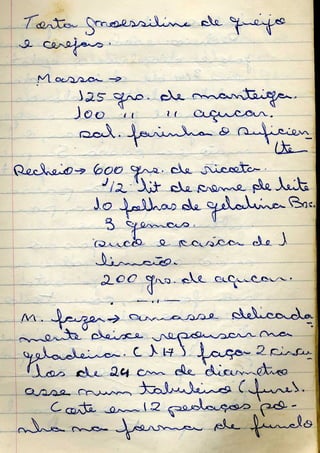 Torta Smoessiline de queijo
e cerejas.
Massa →
125 grs. de manteiga.
100 " " açucar.
sal. farinha o suficien
te
Recheio → 600 grs. de ricota.
1/2 lit de creme de leite
10 folhas de gelatina Bsc.
3 gemas.
suco e casca de 1
limão.
200 grs. de açucar.
M. fazer → amasse delicada
mente deixe repousar na
geladeira. (1 H) faça 2 circu
los de 24 cm de diametro
asse num tabuleiro (fure).
Corte em 12 pedaços po-
nha na forma de fundo